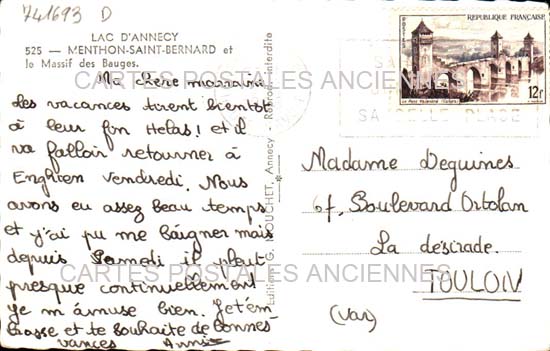 741693 D
LAC D'ANNECY
525 — MENTHON-SAINT-BERNARD et
le Massif des Bauges.
Ma chère marraine
des vacances tirent bientôt
à leur fin Helas! et il
va falloir retourner à
Enghien Vendredi. Nous
avons eu assez beau temps
et j'ai pu me baigner mais
depuis Samedi il pleut
presque continuellement
je m'amuse bien. Je t'em
brasse et te souhaite de bonnes
vances Annie
Editions G. MOUCHET, Annecy - Reprod. interdite
POSTES
REPUBLIQUE FRANÇAISE
Le Pont Valentré (Cahors)
12f
SA BELLE PLAGE
Madame Deguines
67, Boulevard Ortolan
La désirade.
TOULON
(Var)
CARTES POSTALES ANCIENNES
CARTES POSTALES ANCIENNES